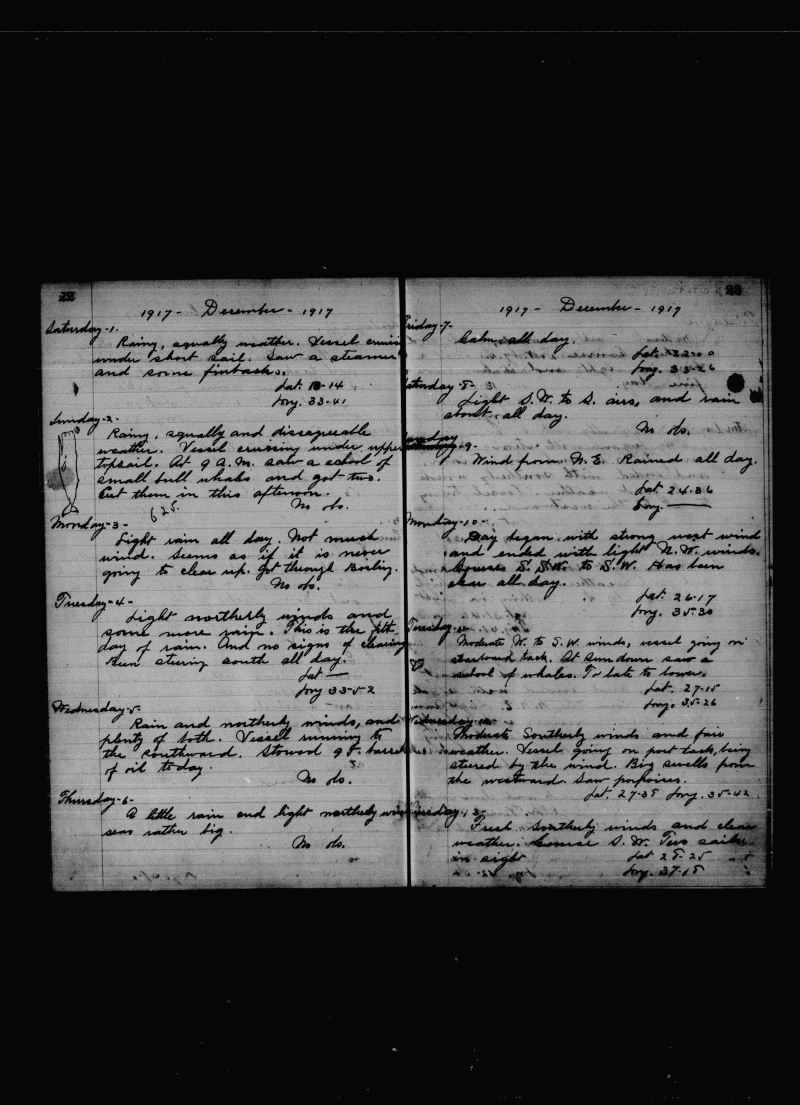 22
1917 - December - 1917
Saturday-1-
Rainy, squally weather. Vessel cruising
under short sail. Saw a steamer
and some finbacks.
Lat. 18-14
Long. 33-41
Sunday-2-
Rainy, squally and disagreeable
weather. Vessel cruising under upper
topsail. At 9 A.M. saw a school of
small bull whales and got two.
Cut them in this afternoon.
No obs.
625.
Monday-3-
Light rain all day. Not much
wind. Seems as if it is never
going to clear up. Got through Boiling.
No obs.
Tuesday-4-
Light northerly winds and
some more rain. This is the
day of rain. And no signs of clearing
Been steering south all day.
Lat —
Long 33-52
Wednesday-5-
Rain and northerly winds, and
plenty of both. Vessel running to
the southward. Stowed 95 barrels
of oil today.
No obs.
Thursday-6-
A little rain and light northerly winds
seas rather big.
No obs.
23
1917 - December - 1917
Friday-7-
Calm all day.
Lat. 22-00
Long. 33-26
Saturday-8-
Light S.W. to S. airs, and rain
about all day.
No obs.
Sunday-9-
Wind from N.E. Rained all day.
Lat. 24-36
Long. —
Monday-10-
Day began with strong west wind
and ended with light N.W. winds.
Courses S.S.W. to S.W. Has been
clear all day.
Lat. 26-17
Long. 35-30
Tuesday-11-
Moderate W. to S.W. winds, vessel going on
starboard tack. At sun down saw a
school of whales. To late to lower.
Lat. 27-15
Long. 35-26
Wednesday-12-
Moderate Southerly winds and fair
weather. Vessel going on port tack, being
steered by the wind. Big swells from
the westward. Saw porpoises.
Lat. 27-35 Long. 35-42
Thursday-13-
Fresh Southerly winds and clear
weather. Course S.W. Two sails
in sight
Lat 28-25
Long. 37-18